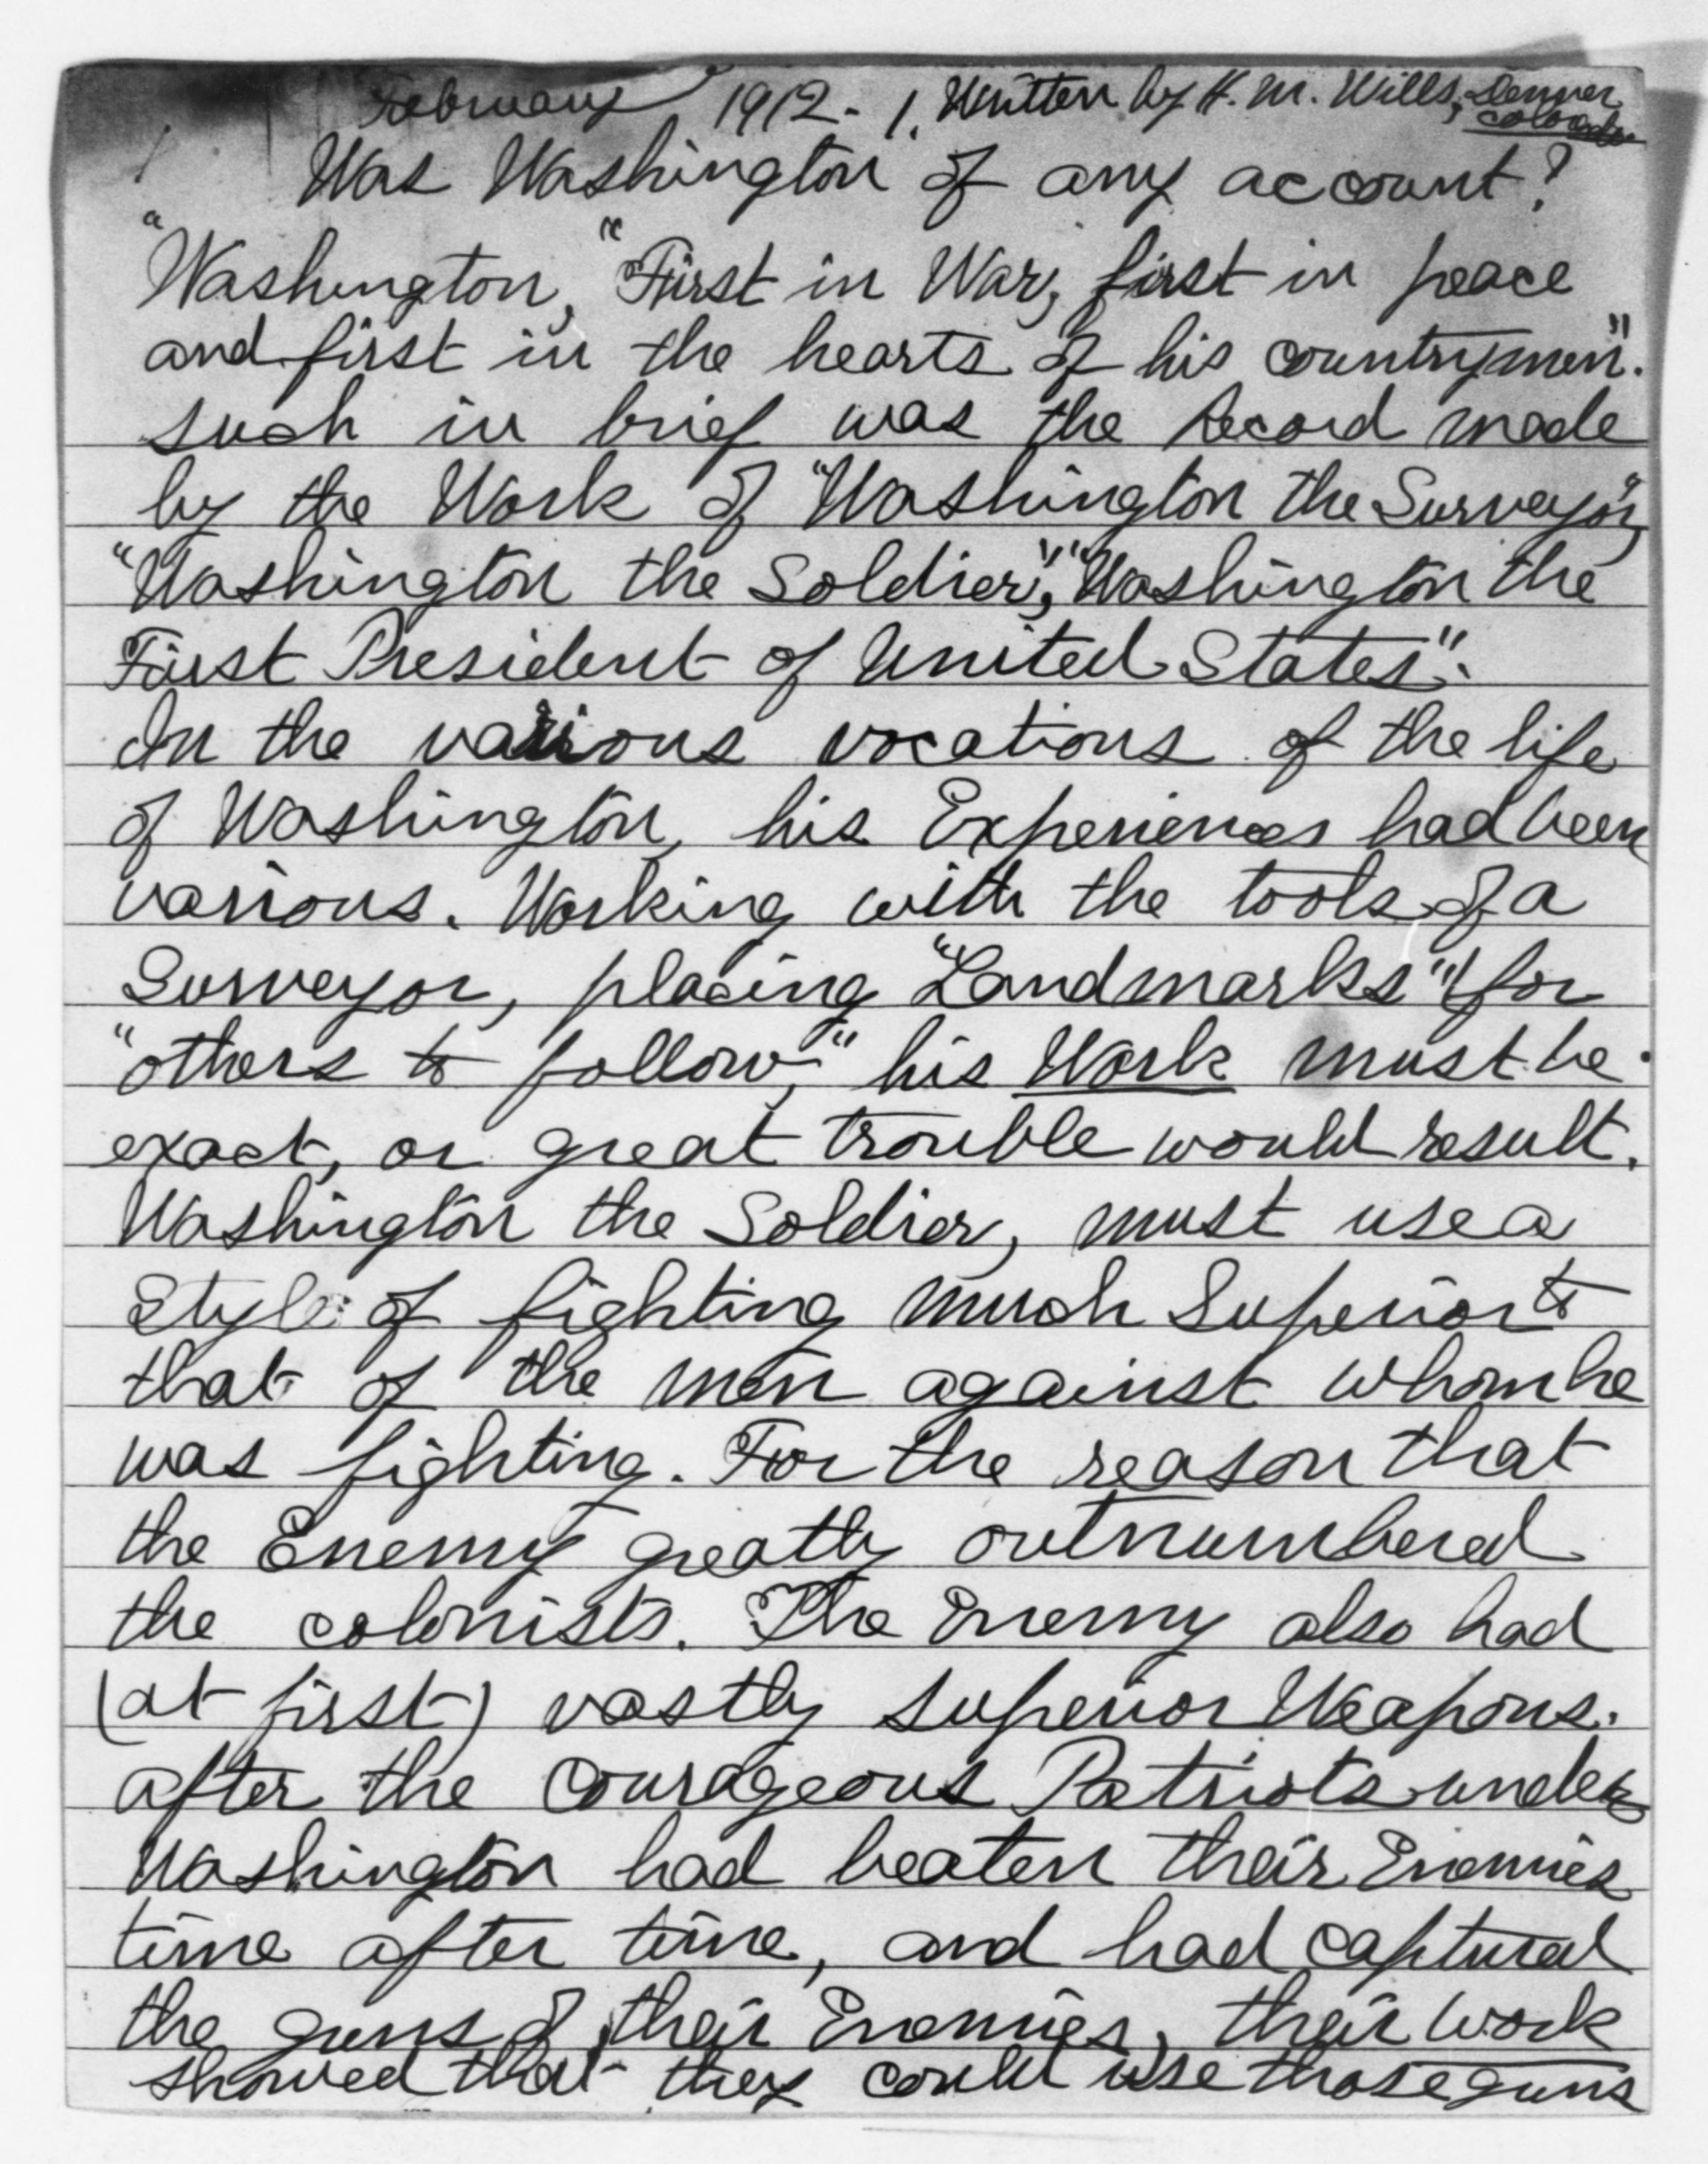 February 1912 - 1, Written by H. M. Wills, Denver
Colorado
Was Washington of any account?
"Washington, "First in War, first in peace
and first in the hearts of his countrymen".
such in brief was the Record made
by the Work of "Washington the Surveyor",
"Washington the Soldier", "Washington the
First President of United States".
In the various vocations of the life
of Washington, his Experiences had been
various. Working with the tools of a
Surveyor, placing "Landmarks" for
"others to follow," his Work must be
exact, or great trouble would result.
Washington the Soldier, must use a
Style of fighting much Superior to
that of the men against whom he
was fighting. For the reason that
the Enemy greatly outnumbered
the colonists. The Enemy also had
(at first) vastly superior Weapons.
after the Courageous Patriots under
Washington had beaten their Enemies
time after time, and had captured
the guns of their Enemies, their work
showed that they could use those guns